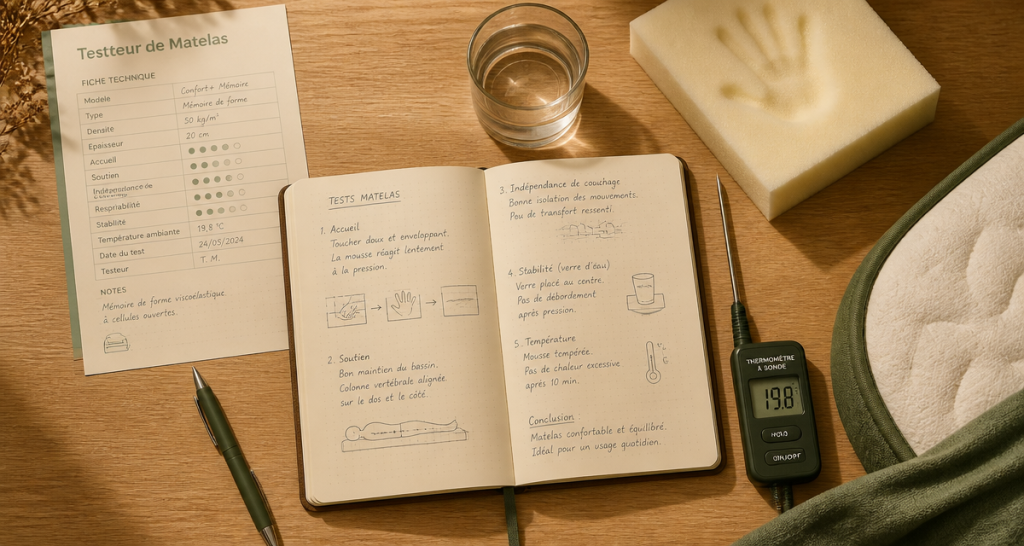 Testteur de Matelas
FICHE TECHNIQUE
Modèle Confort+ Mémoire
Type Mémoire de forme
Densité 50 kg/m³
Epaisseur 20 cm
Accueil
Soutien
Indépendance de
Respriabilité
Stabilité
Température ambiante 19,8 °C
Date du test 24/05/2024
Testeur T. M.
NOTES
Mémoire de forme viscoélastique
à cellules ouvertes.
TESTS MATELAS
1. Accueil
Toucher doux et enveloppant.
La mousse réagit lentement
à la pression.
2. Soutien
Bon maintien du bassin.
Colonne vertébrale alignée
sur le dos et le côté.
3. Indépendance de couchage
Bonne isolation des mouvements.
Pau de transfort ressenti.
4. Stabilité (verre d'eau)
Verre placé au centre.
Pas de débordement
après pression.
5. Température
Mousse tempérée.
Pas de chaleur excessive
après 10 min.
Conclusion
Matelas confortable et équilibré.
Idéal pour un usage quotidien.
THERMOMÈTRE
À SONDE
19.8°
HOLD